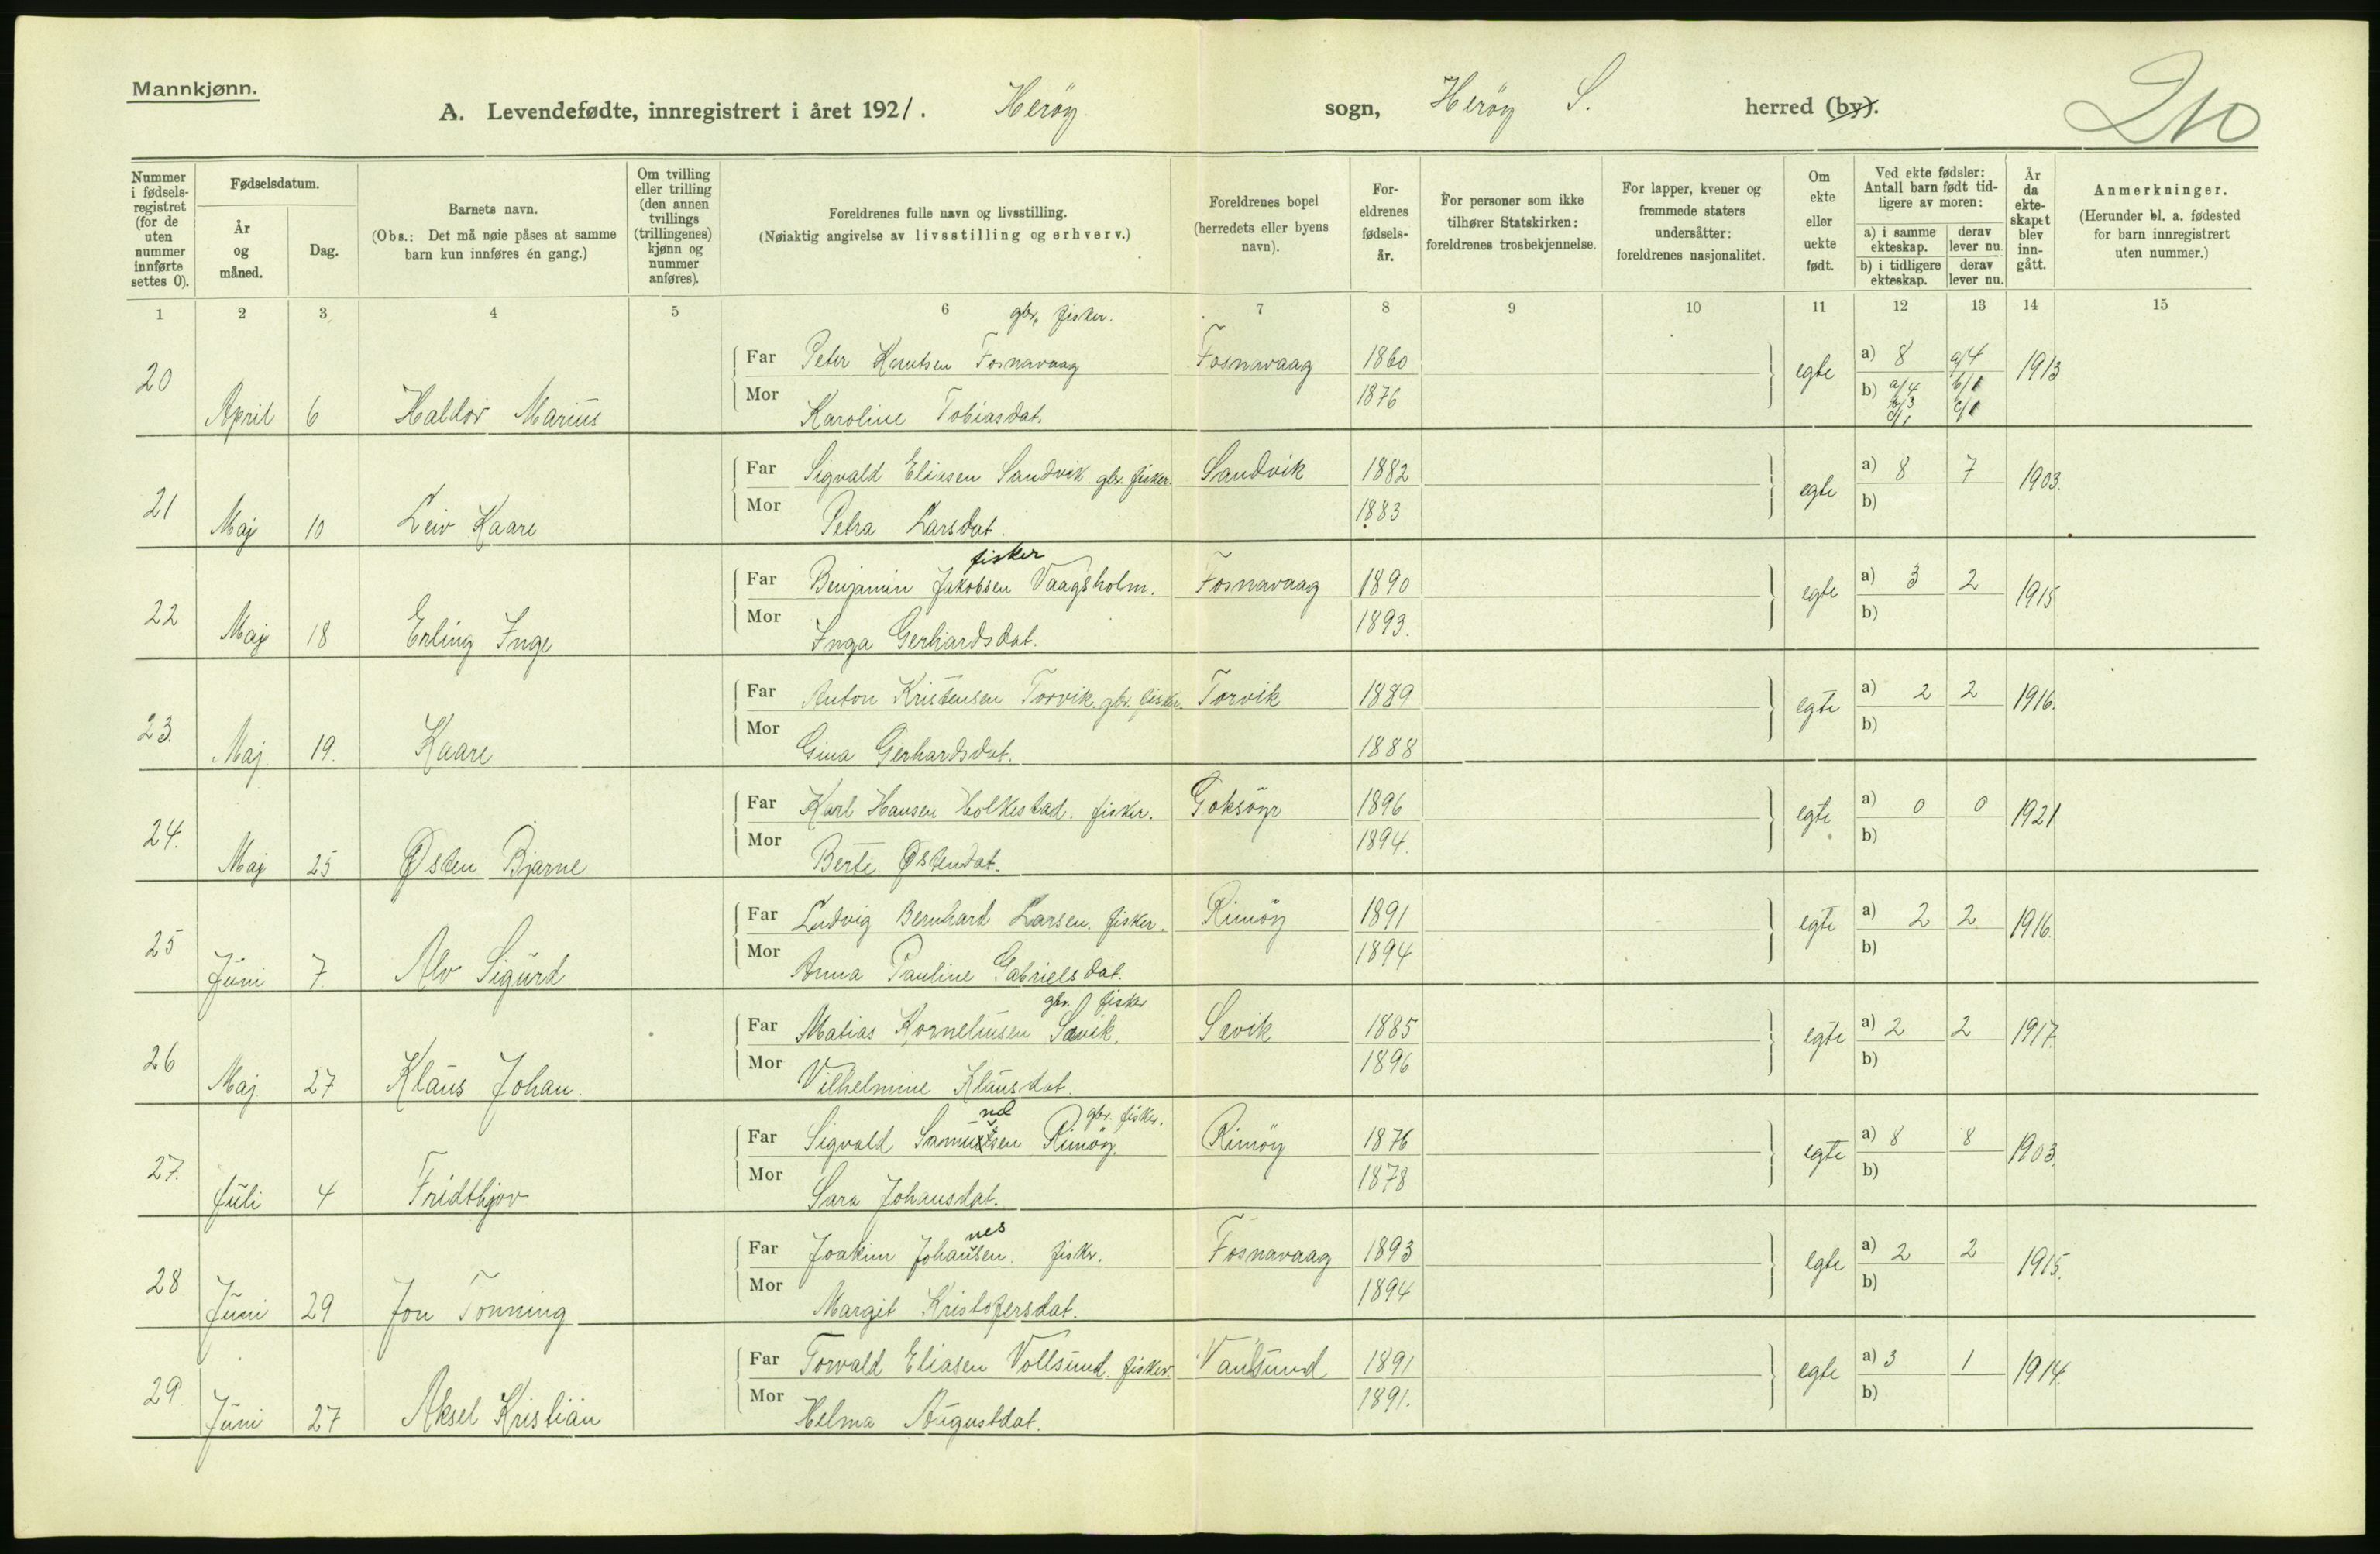 Mannkjønn.
A. Levendefødte, innregistrert i året 1921. Herøy sogn, Herøy S. herred (by).
Nummer i fødsels-registret (for de uten nummer innførte settes 0).
Fødselsdatum.
År og måned.
Dag.
Barnets navn.
(Obs.: Det må nøie påses at samme barn kun innføres én gang.)
Om tvilling eller trilling (den annen tvillings (trillingenes) kjønn og nummer anføres).
Foreldrenes fulle navn og livsstilling.
(Nøiaktig angivelse av livsstilling og erhverv.)
Foreldrenes bopel (herredets eller byens navn).
For-eldrenes fødsels-år.
For personer som ikke tilhører Statskirken: foreldrenes trosbekjennelse.
For lapper, kvener og fremmede staters undersåtter: foreldrenes nasjonalitet.
Om ekte eller uekte født.
Ved ekte fødsler: Antall barn født tid-ligere av moren:
a) i samme ekteskap. derav lever nu.
b) i tidligere ekteskap. derav lever nu.
År da ekte-skapet blev inn-gått.
Anmerkninger.
(Herunder bl. a. fødested for barn innregistrert uten nummer.)
1 2 3 4 5 6 7 8 9 10 11 12 13 14 15
gbr. fisker.
Far Peter Knutsen Fosnavaag Fosnavaag 1860 egte a) 8 a/4 1913
20 April 6 Haldor Marius Mor Karoline Tobiasdat. 1876 b) a/4 b/3 c/1 b/1 c/1
Far Sigvald Eliasen Sandvik gbr. fisker. Sandvik 1882 egte a) 8 7 1903.
21 Maj 10 Leiv Kaare Mor Petra Larsdat. 1883 b)
fisker
Far Benjamin Jakobsen Vaagsholm. Fosnavaag 1890 egte a) 3 2 1915
22 Maj 18 Erling Inge Mor Inga Gerhardsdat. 1893. b)
Far Anton Kristensen Torvik. gbr. fisker. Torvik 1889 egte a) 2 2 1916.
23. Maj 19. Kaare Mor Gina Gerhardsdat. 1888 b)
Far Karl Hansen Holkestad. fisker. Goksöyr 1896 egte a) 0 0 1921
24. Maj 25 Østen Bjarne Mor Berte Østendat. 1894. b)
Far Ludvig Bernhard Larsen. fisker. Rimöy 1891 egte a) 2 2 1916.
25 Juni 7. Alv Sigurd Mor Anna Pauline Gabrielsdat. 1894 b)
gbr. fisker
Far Matias Korneliusen Sævik. Sævik 1885 egte a) 2 2 1917.
26 Maj 27 Klaus Johan. Mor Vilhelmine Klausdat. 1896 b)
gbr. fisker.
Far Sigvald Samuelsen Rimöy. Rimöy 1876 egte a) 8 8 1903.
27. Juli 4 Fridthjov Mor Sara Johansdat. 1878 b)
nes
Far Joakim Johansen. fisker. Fosnavaag 1893 egte a) 2 2 1915.
28 Juni 29 Jon Tonning Mor Margit Kristofersdat. 1894 b)
Far Torvald Eliasen Vollsund. fisker. 1891 egte a) 3 1 1914.
29. Juni 27 Aksel Kristian Mor Helma Augustdat. 1891. b)